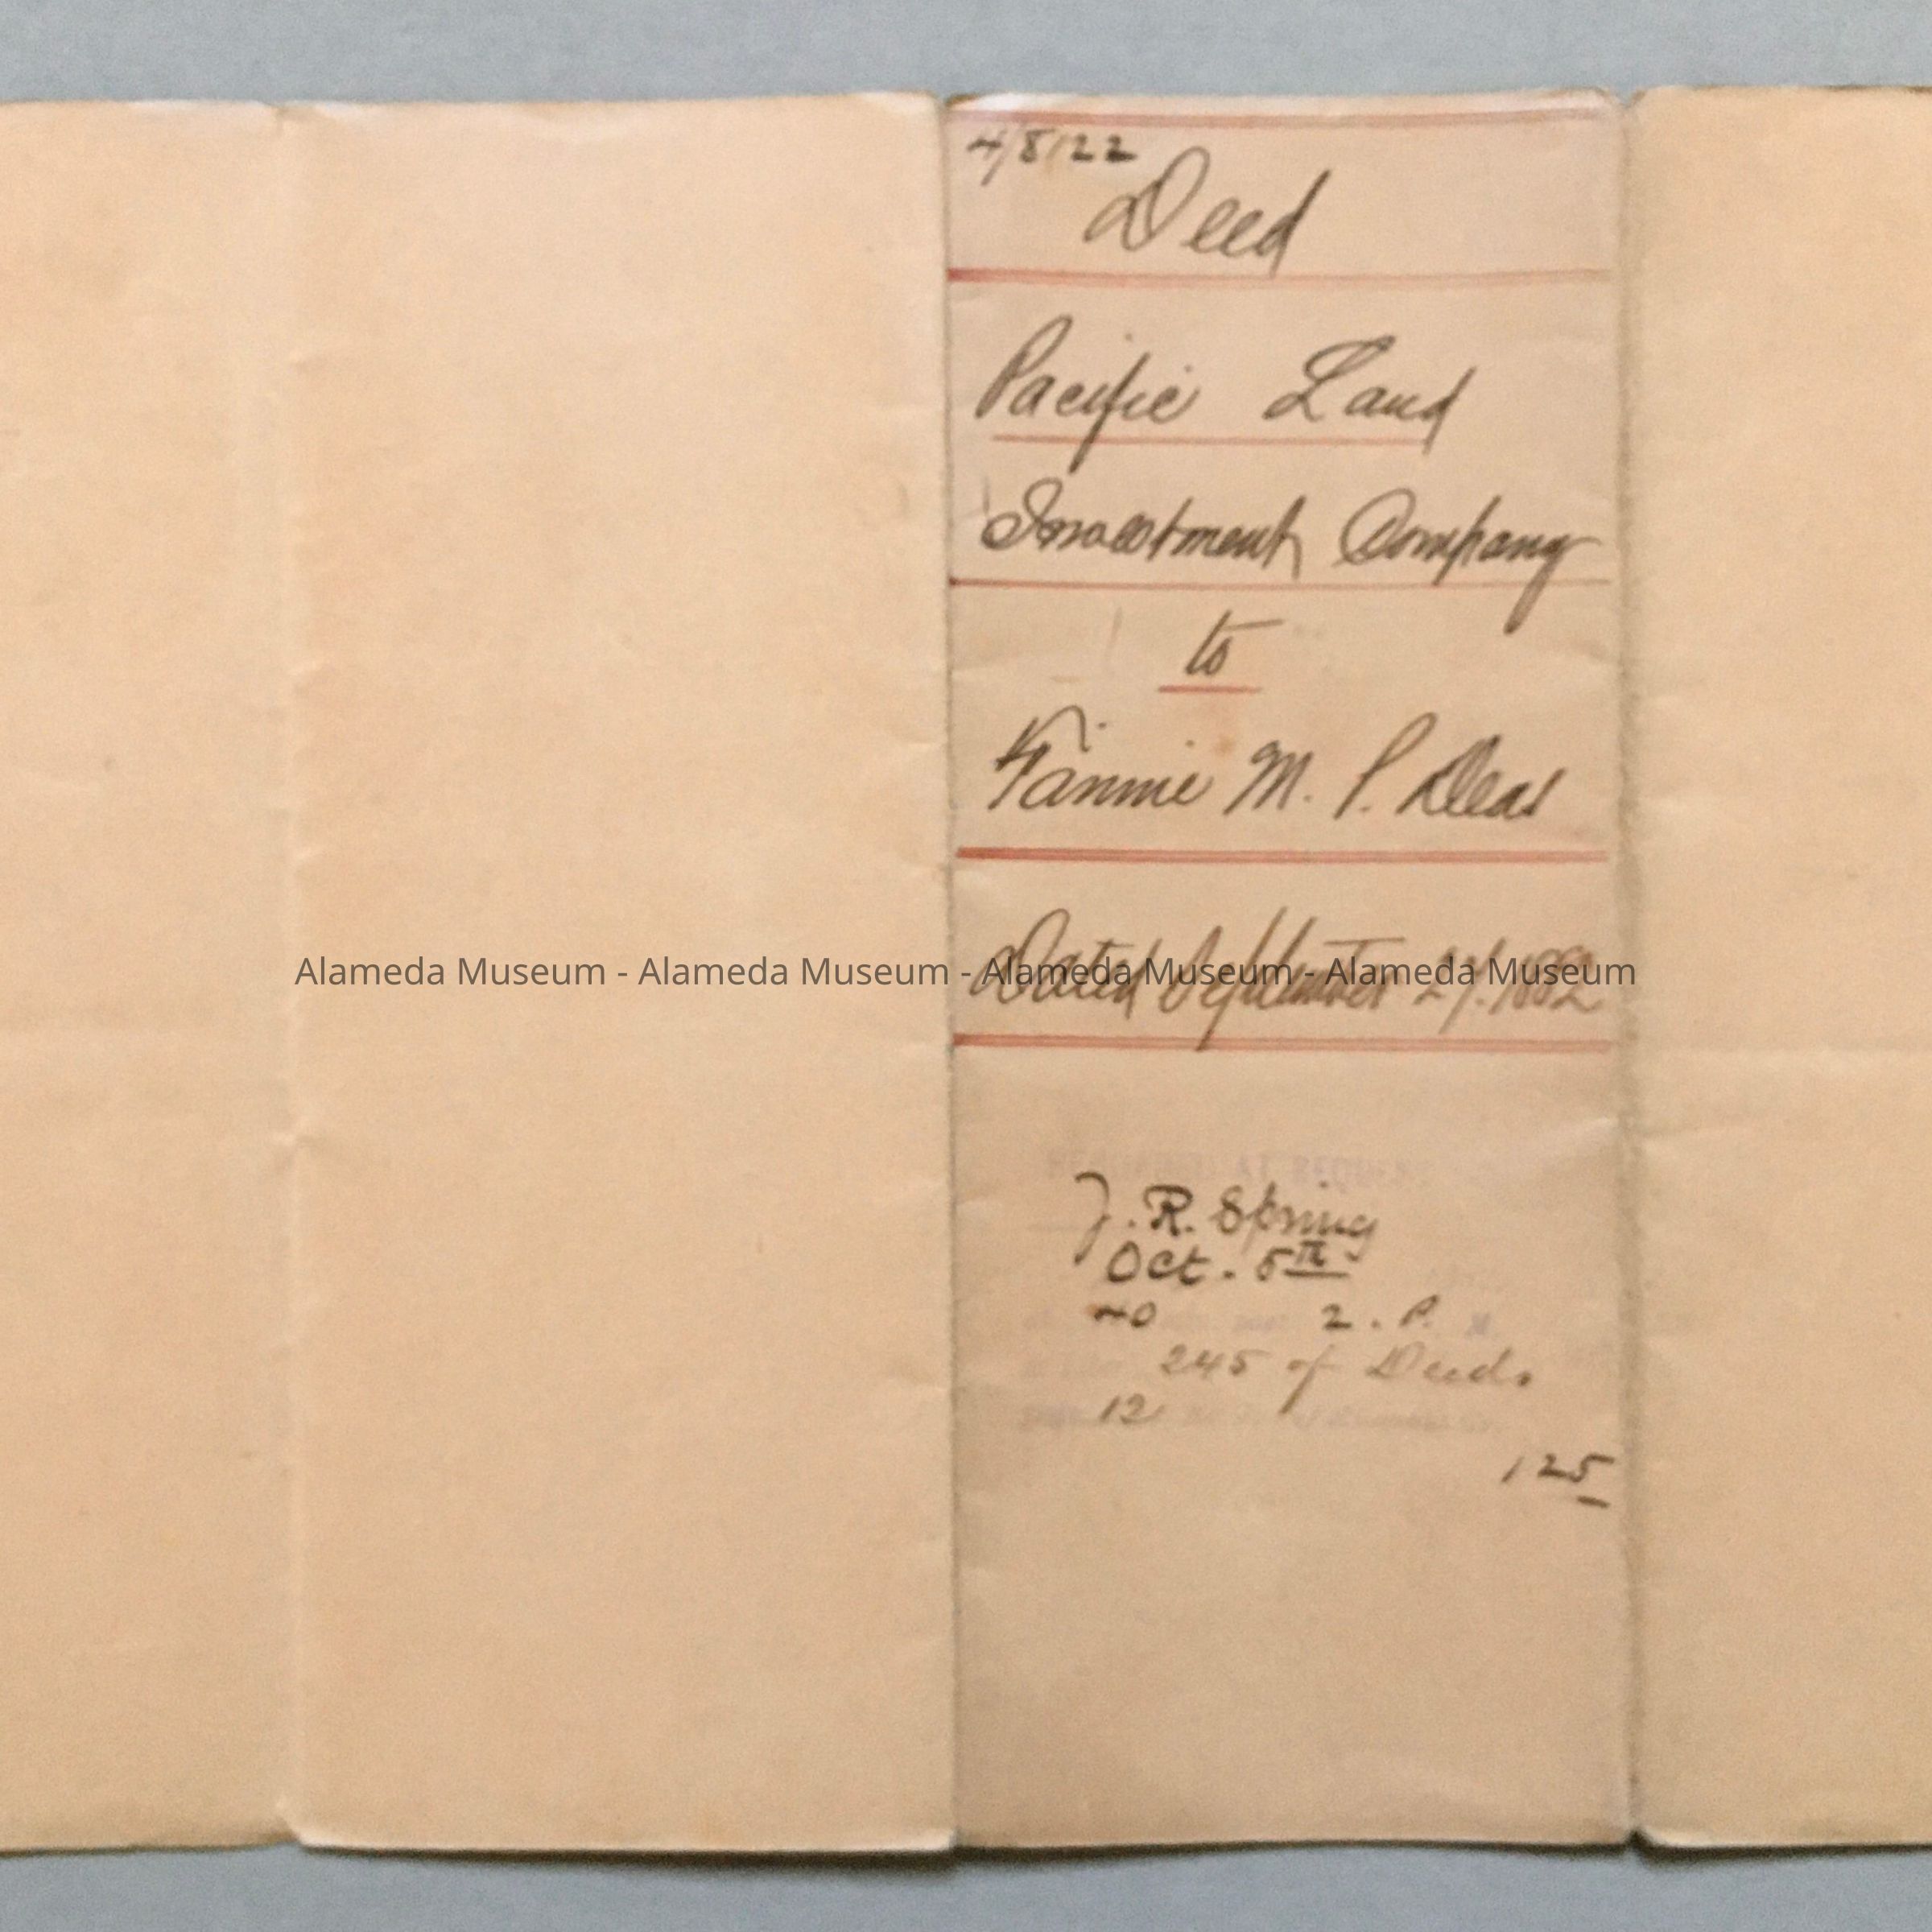 4/8/22
Deed
Pacific Land
Investment Company
to
Fannie M. P. Deas
Dated September 27. 1882
Alameda Museum - Alameda Museum - Alameda Museum - Alameda Museum
AT REQUEST
J. R. Spring
Oct. 5th
40 2. P. M.
245 of Deeds
12
125